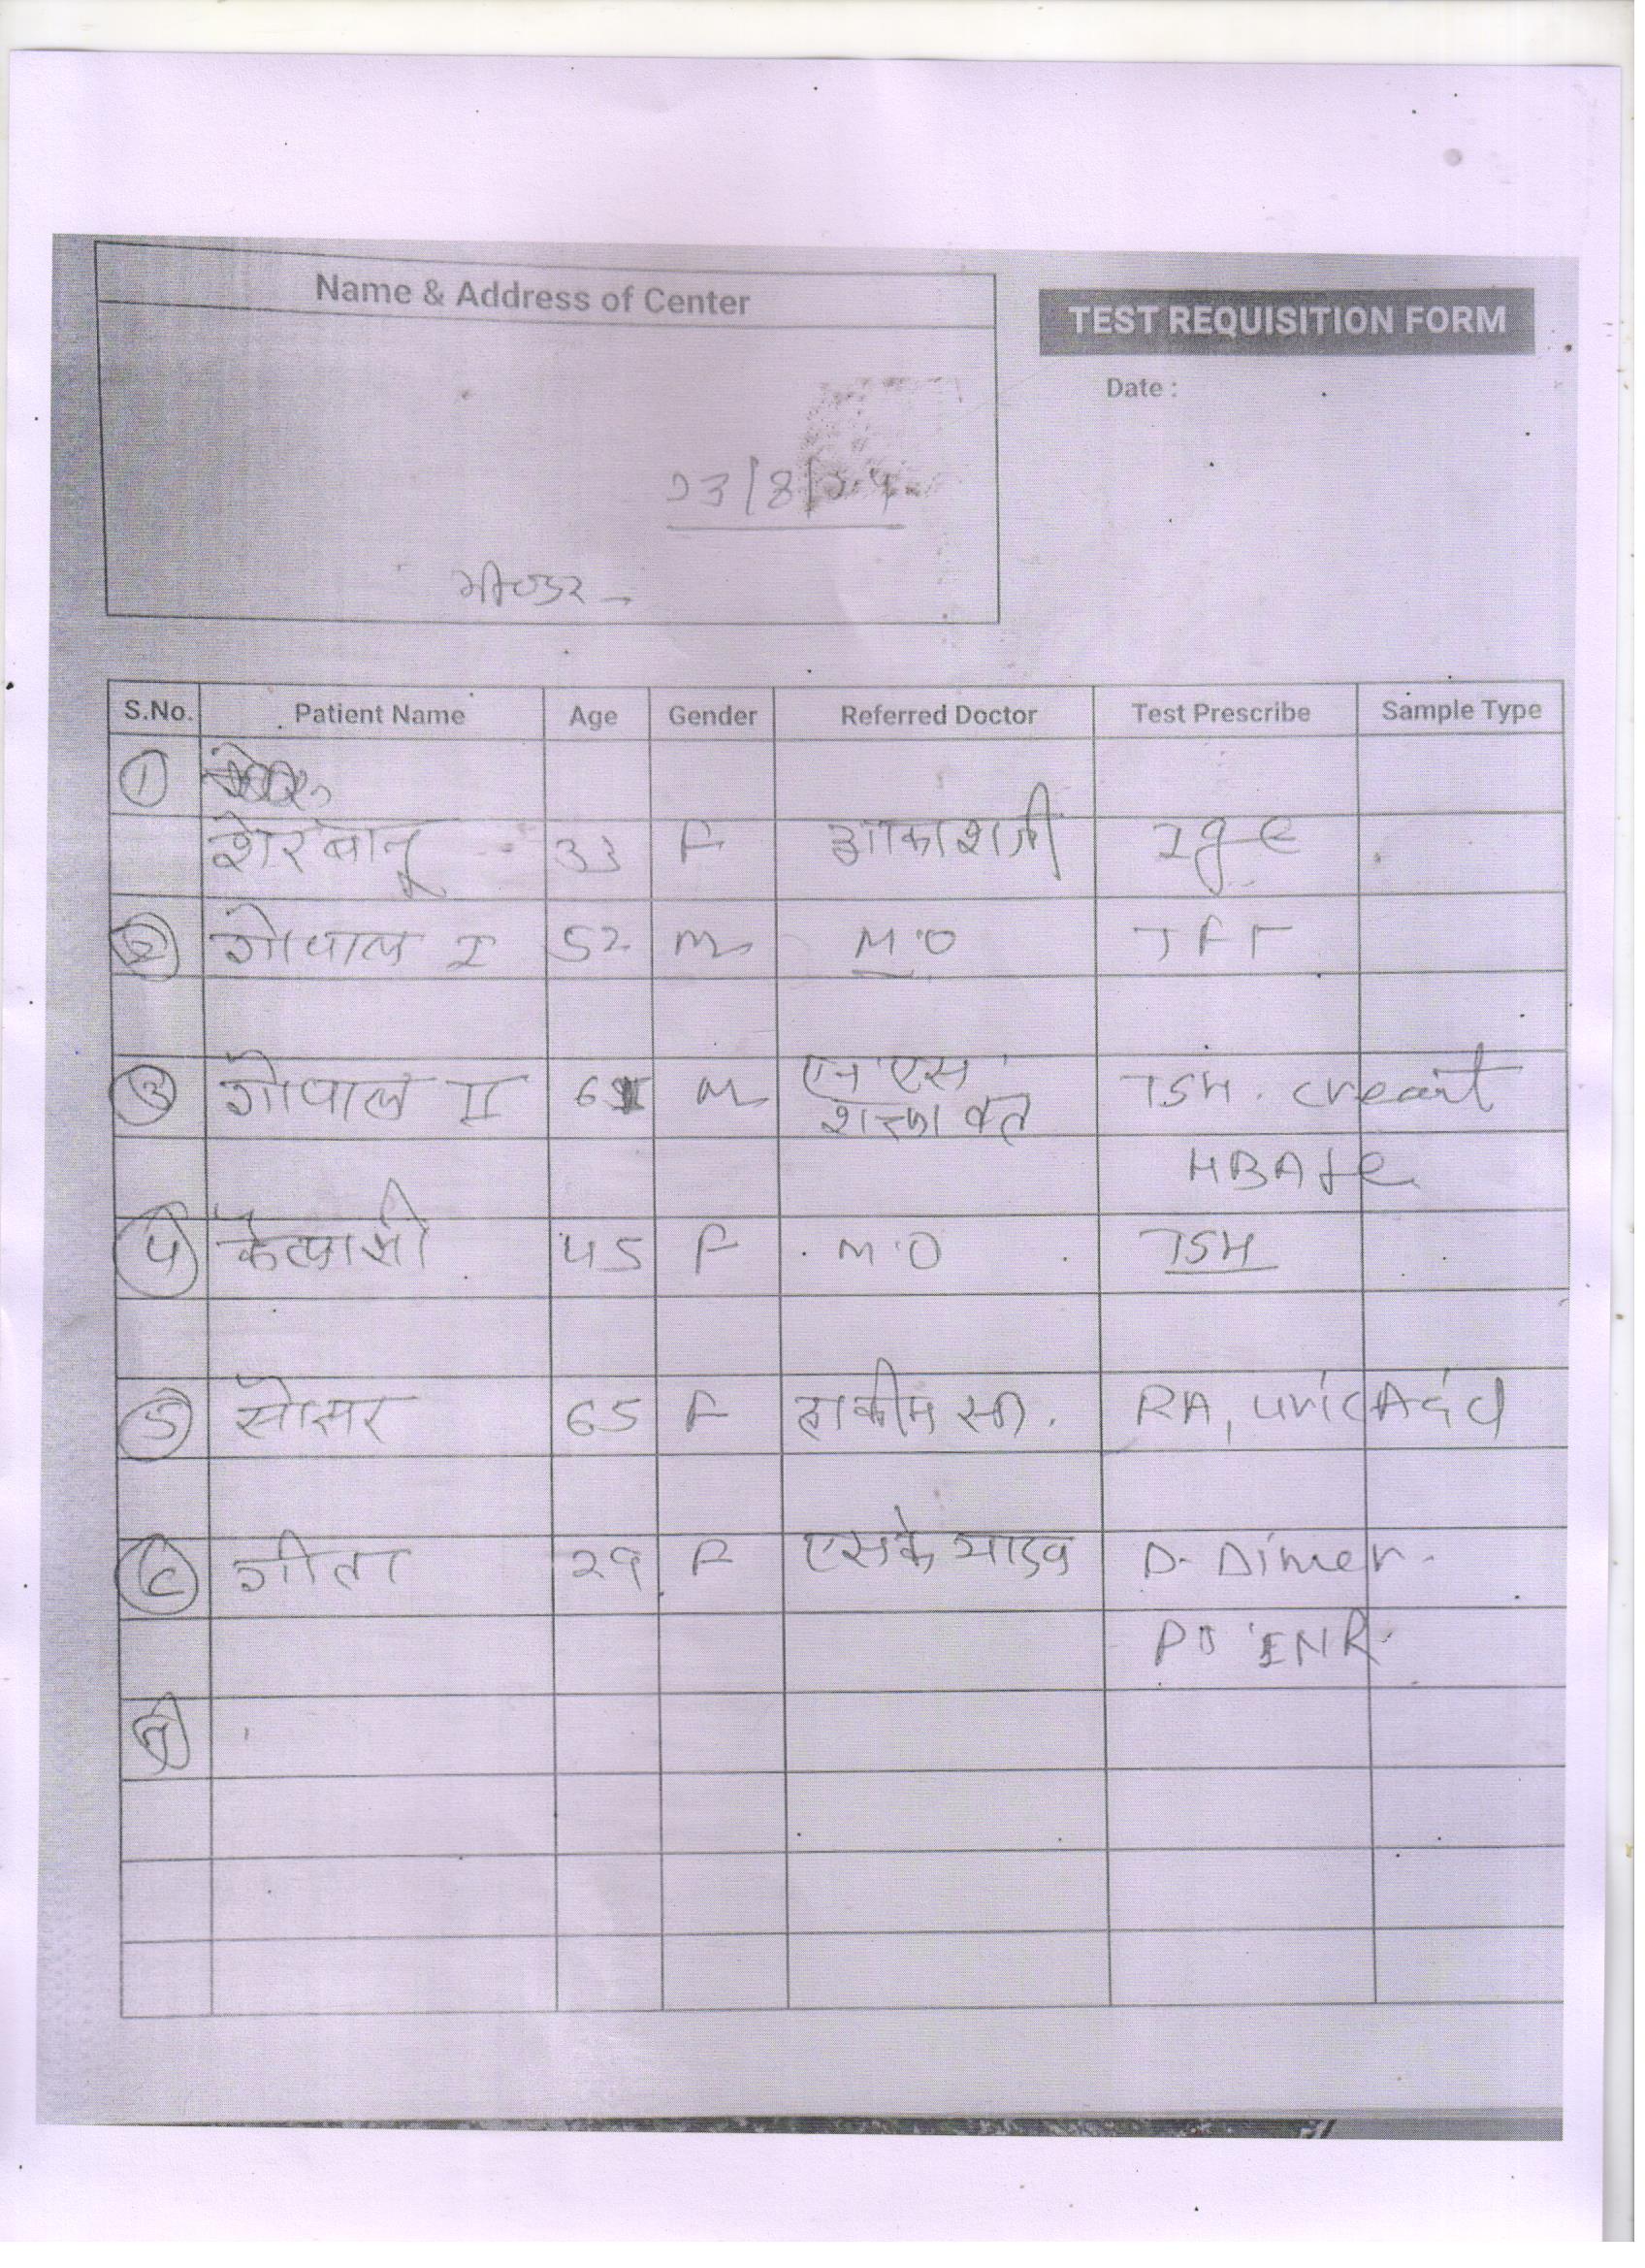 Name & Address of Center
TEST REQUISITION FORM
Date :
23/8/24
भीण्डर -
S.No. Patient Name Age Gender Referred Doctor Test Prescribe Sample Type
1
शेरबानू 33 F आकाशजी Ige
2 गोपाल I 52 M M.O TFT
3 गोपाल II M एन एस TSH. creait
शक्तावत
HBA1c
4 45 F M.O TSH
5 सोसर 65 F हाकीम सा. RA, uric Acid
6 गीता 29 F एस के यादव D-Dimer.
PT INR
7